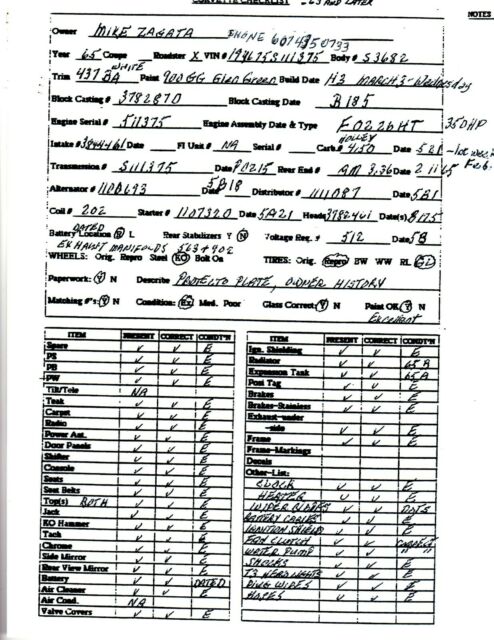 CORVETTE CHECKLIST - 63 AND LATER
NOTES
Owner MIKE ZAGATA PHONE 6074350733
Year 65 Coupe Roadster X VIN# 194675S111375 Body# S3682
WHITE
Trim 437BA Paint 900GG Glen Green Build Date H3 MARCH 3-Wednesday
Block Casting # 3782870 Block Casting Date B185
Engine Serial # 511375 Engine Assembly Date & Type F0226HT 350HP
HOLLEY
Intake # 3844461 Date FI Unit # NA Serial # Carb.# 450 Date 521
Transmission # S111375 Date P0215 Rear End # AM 3.36 Date 2 11 65
Alternator # 1100693 Date 5B18 Distributor # 1111087 Date 5B1
Coil # 202 Starter # 1107320 Date 5A21 Heads 3782461 Date(s)
DATED
Battery Location R L Rear Stabilizers Y N Voltage Reg. # 512 Date 5B
EXHAUST MANIFOLDS 563+902
WHEELS: Orig. Repro Steel KO Bolt On TIRES: Orig. Repro BW WW RL GL
Paperwork: Y N Describe PROTECTO PLATE, OWNER HISTORY
Matching #'s: Y N Condition: Ex Med. Poor Glass Correct: Y N Paint OK: Y N
Excellent
ITEM PRESENT CORRECT CONDT'N
Spare ✓ ✓ E
PS ✓ ✓ E
PB ✓ ✓ E
PW ✓ ✓ E
Tilt/Tele NA
Teak ✓ ✓ E
Carpet ✓ ✓ E
Radio ✓ ✓ E
Power Ant. ✓ ✓ E
Door Panels ✓ ✓ E
Shifter ✓ ✓ E
Console ✓ ✓ E
Seats ✓ ✓ E
Seat Belts ✓ ✓ E
Top(s) BOTH ✓ ✓ E
Jack ✓ ✓ E
KO Hammer ✓ ✓ E
Tach ✓ ✓ E
Chrome ✓ ✓ E
Side Mirror ✓ ✓ E
Rear View Mirror ✓ ✓ E
Battery ✓ ✓ DATED
Air Cleaner ✓ ✓ E
Air Cond. NA
Valve Covers ✓ ✓ E
ITEM PRESENT CORRECT CONDT'N
Ign. Shielding ✓ ✓ E
Radiator ✓ ✓ 65A
Expansion Tank ✓ ✓ 65A
Posi Tag ✓ ✓ E
Brakes ✓ ✓ E
Brakes-Stainless ✓ ✓ E
Exhaust-under
-side ✓ ✓ E
Frame ✓ ✓ E
Frame-Markings
Decals
Other-List:
CLOCK ✓ ✓ E
HEATER ✓ ✓ E
WIPER BLADES ✓ ✓ DOTS
BATTERY CABLES ✓ ✓ E
IGNITION SHIELD ✓ ✓ E
FAN CLUTCH ✓ ✓ CORRECT
WATER PUMP ✓ ✓ " "
SHOCKS ✓ ✓ E
T3 HEADLIGHTS ✓ ✓ E
PLUG WIRES ✓ ✓ E
HOSES ✓ ✓ E